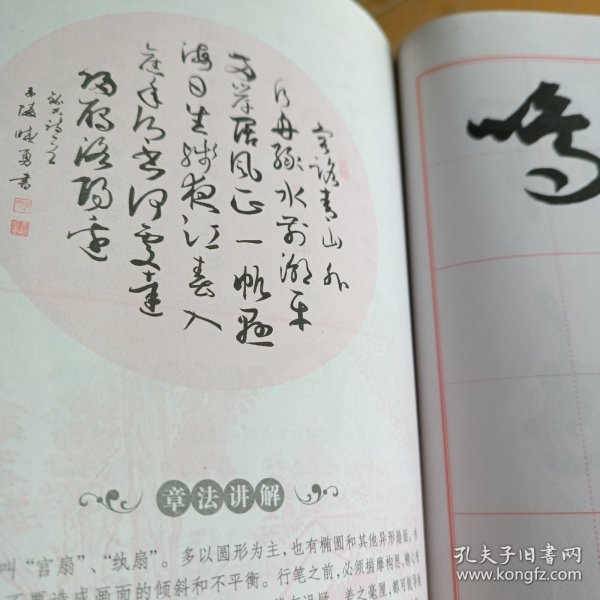 客路青山外
行舟绿水前潮平
两岸阔风正一帆悬
海日生残夜江春入
旧年乡书何处达
归雁洛阳边
书
章法讲解
叫“宫扇”、“纨扇”。多以圆形为主，也有椭圆和其他异形扇面。
要造成画面的倾斜和不平衡。行笔之前，必须揣摩构思，精心
迟疑，差之毫厘，都可能导致
鸣
孔夫子旧书网
www.kongfz.com